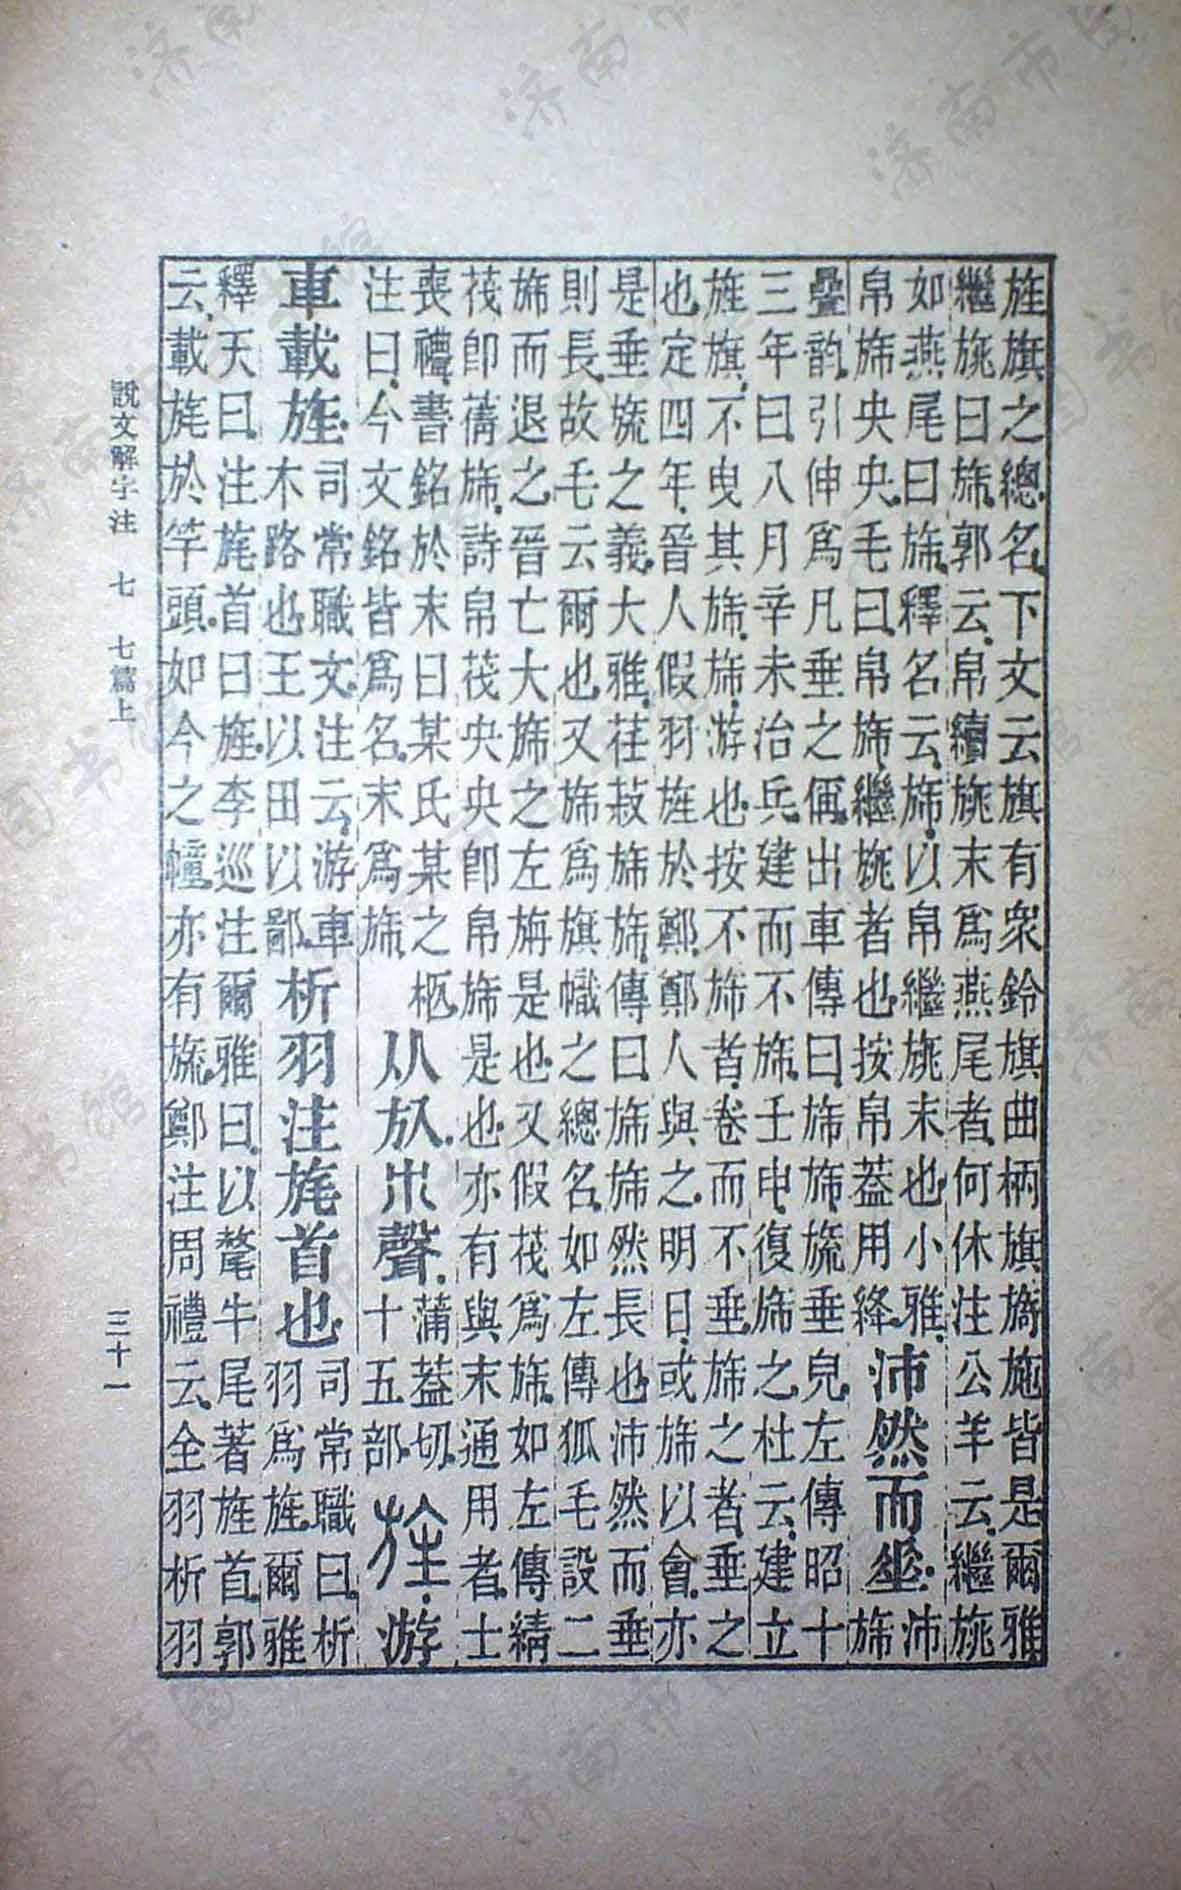 旌旗之總名。下文云旗有衆鈴旗曲柄旗旖施皆是爾雅
繼旐曰旆。郭云。帛續旐末爲燕尾者。何休注公羊云。繼旐
如燕尾曰旆。釋名云。旆。以帛繼旐末也。小雅。
帛旆央央。毛曰。帛旆繼旐者也。按帛葢用絳。
沛然而垂。
沛
旆
疊韵。引伸爲凡垂之偁。出車傳曰。旆旆旒垂皃。左傳昭十
三年曰。八月辛未治兵。建而不旆。壬申。復旆之。杜云。建立
旌旗。不曳其旆。旆。游也。按不旆者。卷而不垂。旆之者。垂之
也。定四年。晉人假羽旌於鄭。鄭人與之。明日。或旆以會。亦
是垂旒之義。大雅。荏菽旆旆。傳曰。旆旆然長也。沛然而垂
則長。故毛云爾也。又旆爲旗幟之總名。如左傳狐毛設二
旆而退之。晉亡大旆之左旃是也。又假茷爲旆。如左傳綪
茷卽蒨旆。詩帛茷央央卽帛旆是也。亦有與末通用者。士
喪禮。書銘於末曰某氏某之柩。
注曰。今文銘皆爲名。末爲旆。
从㫃。巿聲。
蒲葢切。
十五部。
旌。游
車載旌。
司常職文。注云。游車
木路也。王以田以鄙。
析羽注旄首也。
司常職曰。析
羽爲旌。爾雅
釋天曰。注旄首曰旌。李巡注爾雅曰。以氂牛尾著旌首。郭
云。載旄於竿頭。如今之幢。亦有旒。鄭注周禮云。全羽析羽
說文解字注 七 七篇上 三十一